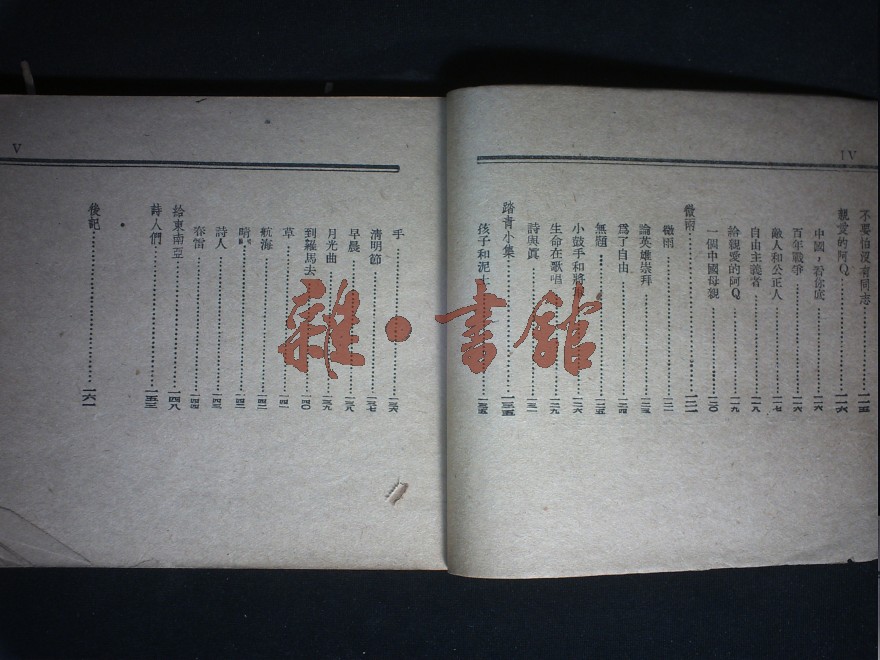 IV
不要怕沒有同志⋯⋯一一五
親愛的阿Q⋯⋯一一六
中國，看你底⋯⋯一一六
百年戰爭⋯⋯一一六
敵人和公正人⋯⋯一一七
自由主義者⋯⋯一一八
給親愛的阿Q⋯⋯一一九
一個中國母親⋯⋯一二〇
微雨⋯⋯一二二
微雨⋯⋯一二二
論英雄崇拜⋯⋯一二三
為了自由⋯⋯一二四
無題⋯⋯一二五
小鼓手和將⋯⋯一二六
生命在歌唱⋯⋯一二九
詩與眞⋯⋯一三一
踏青小集⋯⋯一三五
孩子和泥土⋯⋯一三五
V
手⋯⋯一三六
清明節⋯⋯一三七
早晨⋯⋯一三八
月光曲⋯⋯一三九
到羅馬去⋯⋯一四〇
草⋯⋯一四一
航海⋯⋯一四二
晴⋯⋯一四三
詩人⋯⋯一四三
春雷⋯⋯一四四
給東南亞⋯⋯一四八
詩人們⋯⋯一五三
後記⋯⋯一六一
雜·書館